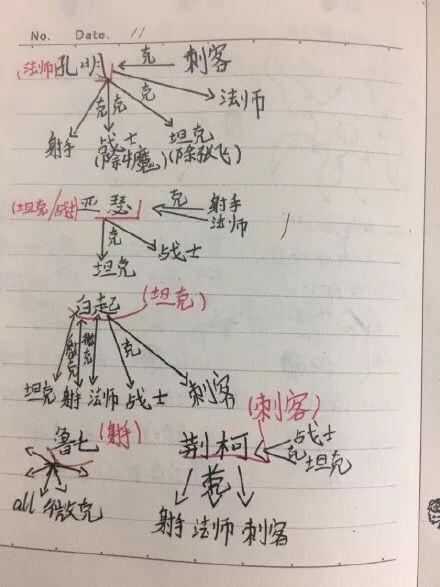 No. Date. 11
(法师)孔明 克 刺客
克 克 克 法师
射手 战士 坦克
(除牛魔) (除张飞)
(坦克/战士) 亚瑟 克 射手
法师
克 战士
坦克
白起 (坦克)
微克 克
坦克 射手 法师 战士 刺客
(刺客)
鲁七 (射手) 荆柯 战士
克 坦克
克
all 微克
射手 法师 刺客